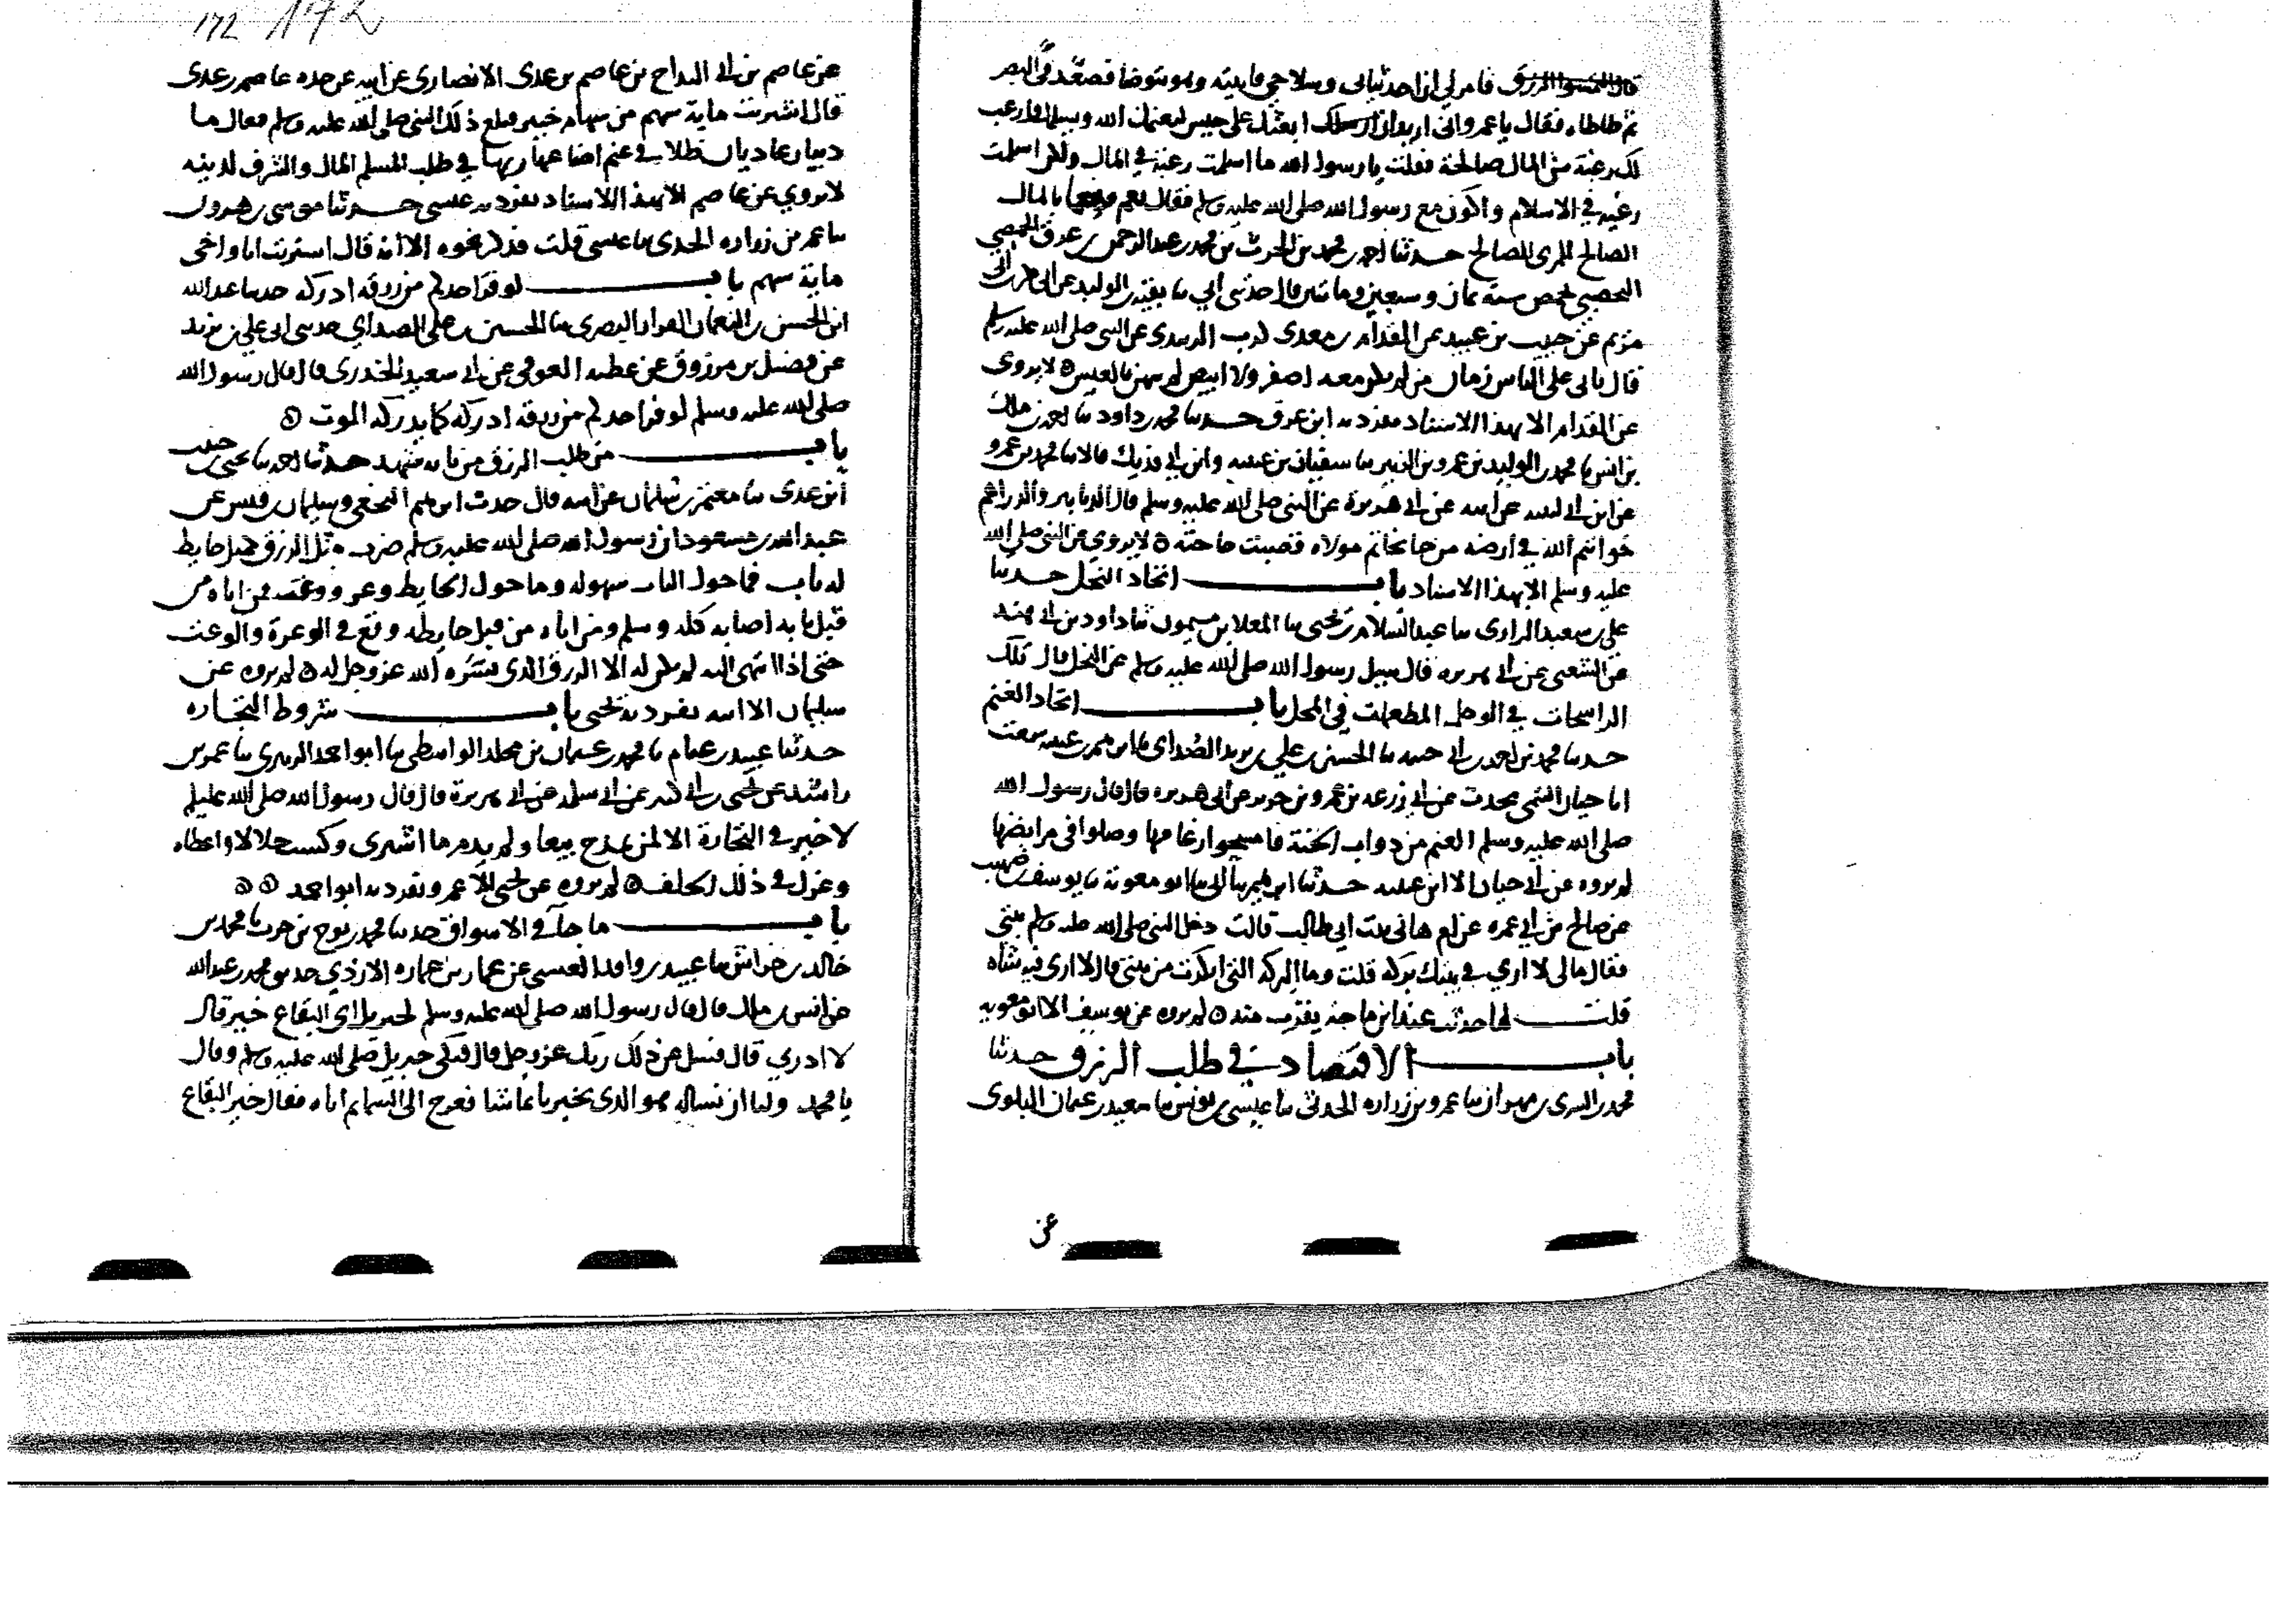 فامرني ان اخذ ثيابي وسلاحي فاتيته وهو يتوضا فصعد في البصر
ثم طاطاه فقال يا عمرو اني اريد ان ابعثك على جيش ليغنمك الله ويسلمك وارغب
لك رغبة من المال صالحة فقلت يا رسول الله ما اسلمت رغبة في المال ولكني اسلمت
رغبة في الاسلام واكون مع رسول الله صلى الله عليه وسلم فقال نعم بالمال
الصالح للمرء الصالح حدثنا احمد بن محمد بن الحرث بن محمد بن عبد الرحمن بن عرق الحمصي
اليحصبي بحمص سنة ثمان وسبعين ومائتين قال حدثني ابي نا بقية بن الوليد عن ابي بكر بن ابي
مريم عن حبيب بن عبيد عن المقدام بن معدي كرب الزبيدي عن النبي صلى الله عليه وسلم
قال ياتي على الناس زمان من لم يكن معه اصفر ولا ابيض لم يتهن بالعيش لا يروى
عن المقدام الا بهذا الاسناد تفرد به ابن عرق حدثنا محمد بن داود نا احمد بن
بن انس نا محمد بن الوليد بن عمرو بن الزبير نا سفيان بن عيينه وابن ابي فديك قالا نا محمد بن عمرو
عن ابن ابي لبيبه عن ابيه عن ابي هريرة عن النبي صلى الله عليه وسلم قال الدنانير والدراهم
خواتيم الله في ارضه من جا بخاتم مولاه قضيت حاجته لا يروى عن النبي صلى الله
عليه وسلم الا بهذا الاسناد باب اتخاذ النخل حدثنا
علي بن سعيد الرازي نا عبد السلام بن يحيى نا المعلا بن ميمون نا داود بن ابي هند
عن الشعبي عن ابي هريره قال سيل رسول الله صلى الله عليه وسلم عن النخل قال تلك
الراسخات في الوحل المطعمات في المحل باب اتخاذ الغنم
حدثنا محمد بن احمد بن ابي خيثمه نا الحسين بن علي بن يزيد الصداي نا ابراهيم بن عيينه سمعت
ابا حيان التيمي يحدث عن ابي زرعه بن عمرو بن جرير عن ابي هريره قال قال رسول الله
صلى الله عليه وسلم الغنم من دواب الجنة فامسحوا رغامها وصلوا في مرابضها
لم يروه عن ابي حيان الا ابن عيينه حدثنا ابراهيم نا ابي نا ابو معوية نا يوسف بن صهيب
عن صالح بن ابي عمره عن ام هاني بنت ابي طالب قالت دخل النبي صلى الله عليه وسلم بيتي
فقال ما لي لا ارى في بيتك بركه قلت وما البركه التي انكرت من بيتي قال لا ارى فيه شاه
قلت لها حديث عند ابن ماجه يقرب منه لم يروه عن يوسف الا ابو معويه
باب الاقتصاد في طلب الرزق حدثنا
محمد بن السري بن مهران نا عمرو بن زراره الحدثي نا عيسى بن يونس نا سعيد بن عثمان البلوي
عن
172 172
عن عاصم بن ابي البداح بن عاصم بن عدي الانصاري عن ابيه عن جده عاصم بن عدي
قال اشتريت ماية سهم من سهام خيبر فبلغ ذلك النبي صلى الله عليه وسلم فقال ما
ذيبان عاديان ظلا في غنم اضاعها ربها في طلب المسلم المال والشرف لدينه
لا يروى عن عاصم الا بهذا الاسناد تفرد به عيسى حدثنا موسى بن هرون
نا عمر بن زراره الحدثي نا عيسى قلت فذكر نحوه الا انه قال اشتريت انا واخي
ماية سهم باب لو فر احدكم من رزقه ادركه حدثنا عبد الله
ابن الحسن بن النعمان القزاز البصري نا الحسين بن علي الصداي حدثني ابي علي بن يزيد
عن فضيل بن مرزوق عن عطيه العوفي عن ابي سعيد الخدري قال قال رسول الله
صلى الله عليه وسلم لو فر احدكم من رزقه ادركه كما يدركه الموت
باب من طلب الرزق من بابه حدثنا احمد نا يحيى بن حبيب
ابن عدي نا معتمر بن سليمان عن ابيه قال حدث ابرهيم النخعي وسليمان بن قيس عن
عبد الله بن مسعود ان رسول الله صلى الله عليه وسلم ضرب مثل الرزق كمثل حايط
له باب فما حول الباب سهوله وما حول الحايط وعر ووعث فمن اتاه من
قبل بابه اصابه كله وسلم ومن اتاه من قبل حايطه وقع في الوعرة والوعث
حتى اذا انتهى اليه لم يكن له الا الرزق الذي يسره الله عز وجل له لم يروه عن
سليمان الا ابنه تفرد به يحيى باب شروط التجاره
حدثنا عبيد بن غنام نا محمد بن عثمان بن مخلد الواسطي نا ابو احمد الزبيري نا عمر بن
راشد عن يحيى بن ابي كثير عن ابي سلمه عن ابي هريرة قال قال رسول الله صلى الله عليه وسلم
لا خير في التجارة الا لمن لم يمدح بيعا ولم يذم ما اشترى وكسب حلالا واعطاه
وعزل في ذلك الحلف لم يروه عن يحيى الا عمر وتفرد به ابو احمد
باب ما جا في الاسواق حدثنا محمد بن نوح بن حرب نا محمد بن
خالد بن خداش نا عبيد بن واقد العبسي عن عمار بن عماره الازدي حدثني محمد بن عبد الله
عن انس بن مالك قال قال رسول الله صلى الله عليه وسلم لجبريل اي البقاع خير قال
لا ادري قال فسل عن ذلك ربك عز وجل قال فبكى جبريل صلى الله عليه وسلم وقال
يا محمد ولنا ان نساله هو الذي يخبرنا بما شا فعرج الى السما ثم اتاه فقال خير البقاع